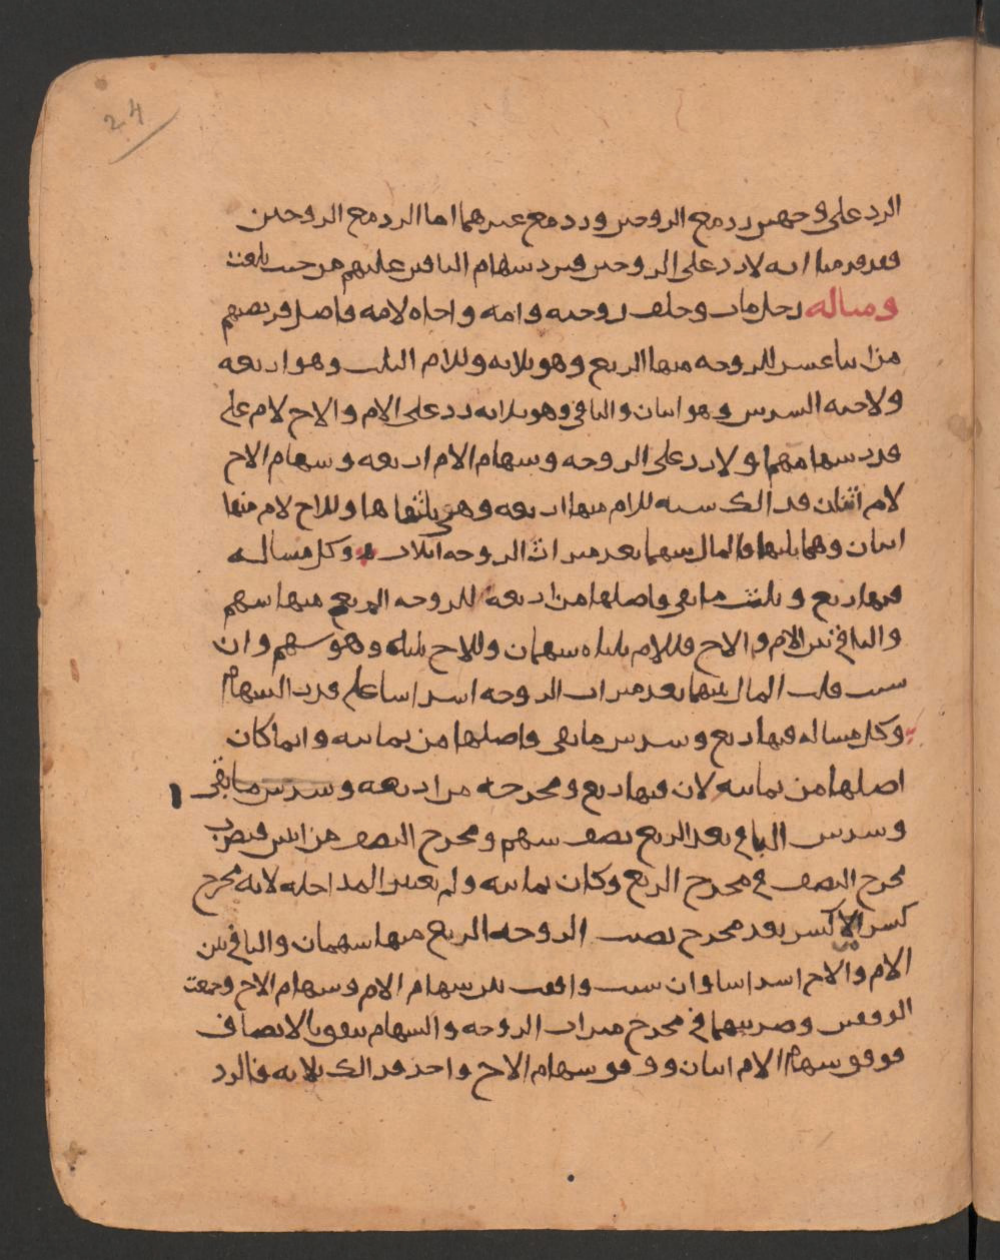 24
الرد على وجهين رد مع الزوجين ورد مع غيرهما اما الرد مع الزوجين
فقد قدمنا انه لا رد على الزوجين فيرد سهام الباقين عليهم من حيث بلغت
ومثاله رجل مات وخلف زوجته وامه واخاه لامه فاصل فريضتهم
من اثنا عشر للزوجه منها الربع وهو ثلاثه وللام الثلث وهو اربعه
ولاخيه السدس وهو اثنان والباقي وهو ثلاثه رد على الام والاخ لام على
قدر سهامهما ولا رد على الزوجه وسهام الام اربعه وسهام الاخ
لام اثنان فذالك سته للام منها اربعه وهي ثلثاها وللاخ لام منها
اثنان وهما ثلثها فالمال بينهما بعد ميراث الزوجه اثلاث وكل مساله
فيها ربع وثلث ما بقى فاصلها من اربعه للزوجه الربع منها سهم
والباقي بين الام والاخ فللام ثلثاه سهمان وللاخ ثلثه وهو سهم وان
شيت قلت المال بينهما بعد ميراث الزوجه اسداسا على قدر السهام
وكل مساله فيها ربع وسدس ما بقى فاصلها من ثمانيه وانما كان
اصلها من ثمانيه لان فيها ربع ومخرجه من اربعه وسدس ما بقى
وسدس الباقي بعد الربع نصف سهم ومخرج النصف من اثنين فيضرب
مخرج النصف في مخرج الربع وكان ثمانيه ولم يعتبر المداخله لانه مخرج
كسر الاكسر بعد مخرج نصيب الزوجه الربع منها سهمان والباقي بين
الام والاخ اسداسا وان شيت وافقت بين سهام الام وسهام الاخ وجمعت
الوفقين وضربتهما في مخرج ميراث الزوجه والسهام يتفق بالانصاف
فوفق سهام الام اثنان ووفق سهام الاخ واحد فذالك ثلاثه فالرد